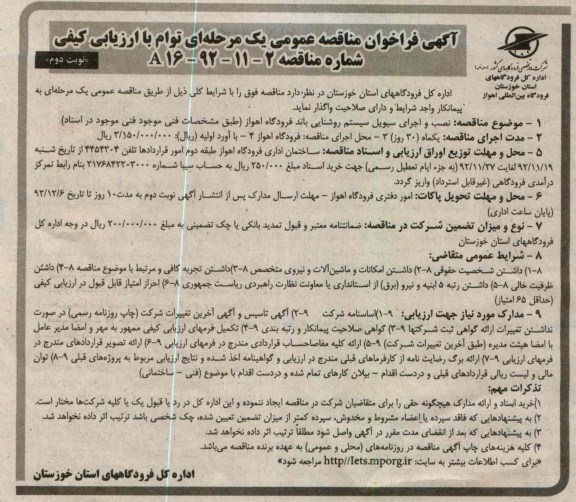 آگهی فراخوان مناقصه عمومی یک مرحله‌ای توام با ارزیابی کیفی
شماره مناقصه ۲-۱۱-۹۲-A ۱۶
«نوبت دوم»
اداره کل فرودگاههای
استان خوزستان
فرودگاه بین‌المللی اهواز
اداره کل فرودگاههای استان خوزستان در نظر دارد مناقصه فوق را با شرایط کلی ذیل از طریق مناقصه عمومی یک مرحله‌ای به
پیمانکار واجد شرایط و دارای صلاحیت واگذار نماید.
۱ - موضوع مناقصه: نصب و اجرای سیویل سیستم روشنایی باند فرودگاه اهواز (طبق مشخصات فنی موجود فنی موجود در اسناد)
۲ - مدت اجرای مناقصه: یکماه (۳۰ روز) ۳ - محل اجرای مناقصه: فرودگاه اهواز ۴ - با آورد اولیه (ریال): ۳/۱۵۰/۰۰۰/۰۰۰
۵ - محل و مهلت توزیع اوراق ارزیابی و اسناد مناقصه: ساختمان اداری فرودگاه اهواز طبقه دوم امور قراردادها تلفن ۴۴۵۴۲۰۴ از تاریخ شنبه
۹۲/۱۱/۱۹ لغایت ۹۲/۱۱/۲۷ (به جزء ایام تعطیل رسمی) جهت خرید اسناد مبلغ ۲۵۰/۰۰۰ ریال به حساب سیبا شماره ۲۱۷۶۸۴۲۲۰۳۰۰۰ بنام رابط تمرکز
درآمدی فرودگاهی (غیرقابل استرداد) واریز گردد.
۶ - محل و مهلت تحویل پاکات: امور دفتری فرودگاه اهواز - مهلت ارسال مدارک پس از انتشار آگهی نوبت دوم به مدت ۱۰ روز تا تاریخ ۹۲/۱۲/۶
(پایان ساعت اداری)
۷ - نوع و میزان تضمین شرکت در مناقصه: ضمانتنامه معتبر و قبول تمدید بانکی یا چک تضمینی به مبلغ ۲۰۰/۰۰۰/۰۰۰ ریال در وجه اداره کل
فرودگاههای استان خوزستان
۸ - شرایط عمومی متقاضی:
۸-۱) داشتن شخصیت حقوقی ۸-۲) داشتن امکانات و ماشین‌آلات و نیروی متخصص ۸-۳)داشتن تجربه کافی و مرتبط با موضوع مناقصه ۸-۴) داشتن
ظرفیت خالی ۸-۵) داشتن رتبه ۵ ابنیه و نیرو (برق) از استانداری یا معاونت نظارت راهبردی ریاست جمهوری ۸-۶) احراز امتیاز قابل قبول در ارزیابی کیفی
(حداقل ۶۵ امتیاز)
۹ - مدارک مورد نیاز جهت ارزیابی: ۹-۱)اساسنامه شرکت ۹-۲) آگهی تاسیس و آگهی آخرین تغییرات شرکت (چاپ روزنامه رسمی) در صورت
نداشتن تغییرات ارائه گواهی ثبت شرکتها ۹-۳) گواهی صلاحیت پیمانکار و رتبه بندی ۹-۴) تکمیل فرمهای ارزیابی کیفی ممهور به مهر و امضا مدیر عامل
یا امضا هیئت مدیره (طبق آخرین تغییرات شرکت) ۹-۵) ارائه کلیه مفاصاحساب قراردادی مندرج در فرمهای ارزیابی ۹-۶) ارائه تصویر قراردادهای مندرج در
فرمهای ارزیابی ۹-۷) ارائه برگ رضایت نامه از کارفرماهای قبلی مندرج در ارزیابی و گواهینامه اخذ شده و نتایج ارزیابی مربوط به پروژه‌های قبلی ۹-۸) توان
مالی و لیست ریالی قراردادهای قبلی و دردست اقدام - بیلان کارهای تمام شده و دردست اقدام با موضوع (فنی - ساختمانی)
تذکرات مهم:
۱)خرید اسناد و ارائه مدارک هیچگونه حقی را برای متقاضیان شرکت در مناقصه ایجاد ننموده و این اداره کل در رد یا قبول یک یا کلیه شرکت‌ها مختار است.
۲) به پیشنهادهایی که فاقد سپرده یا امضاء مشروط و مخدوش، سپرده کمتر از میزان تضمین تعیین شده، چک شخصی باشد ترتیب اثر داده نخواهد شد.
۳) به پیشنهادهایی که بعد از انقضای مدت مقرر در آگهی واصل شود مطلقاً ترتیب اثر داده نخواهد شد.
۴) کلیه هزینه‌های چاپ آگهی مناقصه در روزنامه‌های (محلی و عمومی) به عهده برنده مناقصه می‌باشد.
«برای کسب اطلاعات بیشتر به سایت: http//Iets.mporg.ir مراجعه شود»
اداره کل فرودگاههای استان خوزستان